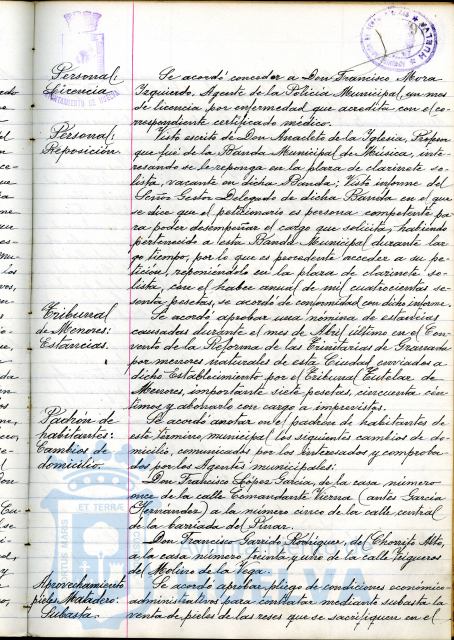 Personal:
Licencia
Se acordó conceder a Don Francisco Mora
Izquierdo, Agente de la Policia Municipal, un mes
de licencia por enfermedad que acredita con el co-
rrespondiente certificado médico.
Personal:
Reposición
Visto escrito de Don Anacleto de la Iglesia, Profesor
que fué de la Banda Municipal de Música, inte-
resando se le reponga en la plaza de clarinete so-
lista, vacante en dicha Banda; Visto informe del
Señor Gestor Delegado de dicha Banda en el que
se dice que el peticionario es persona competente pa-
ra poder desempeñar el cargo que solicita, habiendo
pertenecido a esta Banda Municipal durante lar-
go tiempo, por lo que es procedente acceder a su pe-
tición, reponiéndolo en la plaza de clarinete so-
lista, con el haber anual de mil cuatrocientas se-
senta pesetas, se acordó de conformidad con dicho informe.
Tribunal
de Menores:
Estancias.
Se acordó aprobar una nómina de estancias
causadas durante el mes de Abril último en el Con-
vento de la Reforma de las Trinitarias de Granada
por menores naturales de esta Ciudad enviados a
dicho Establecimiento por el Tribunal Tutelar de
Menores, importante siete pesetas, cincuenta cén-
timos y abonarlo con cargo a imprevistos.
Padrón de
habitantes:
Cambios de
domicilio.
Se acordó anotar en el padrón de habitantes de
este término municipal los siguientes cambios de do-
micilio, comunicados por los interesados y comproba-
dos por los Agentes municipales:
Don Francisco López García, de la casa número
once de la calle Comandante Vierna (antes García
Hernández) a la número cinco de la calle central
de la barriada del Pinar.
Don Francisco Garrido Rodríguez, del Chorrito Alto,
a la casa número treinta y uno de la calle Figueroa
del Molino de la Vega.
Aprovechamiento
pieles Matadero:
Subasta.
Se acordó aprobar pliego de condiciones económico-
administrativas para contratar mediante subasta la
venta de pieles de las reses que se sacrifiquen en el